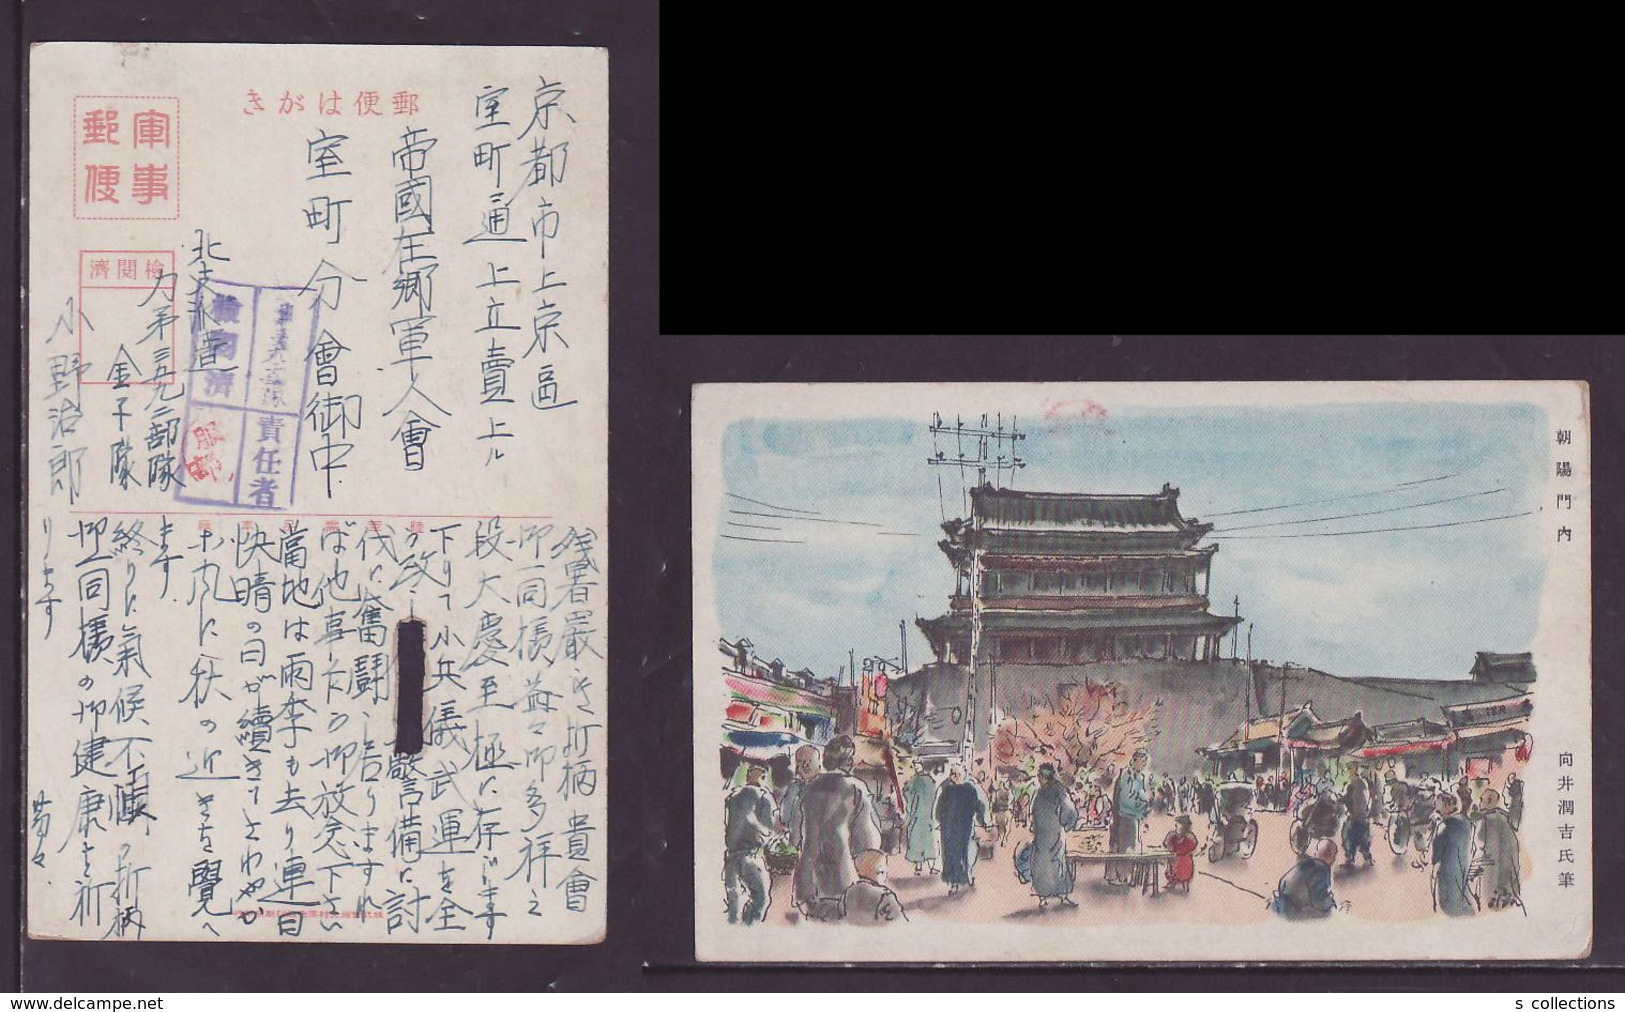 郵便はがき
軍事
郵便
檢閲濟
京都市上京區
室町通上立賣上ル
帝國在郷軍人會
室町分會御中
北支派遣
第三五九二部隊
金子隊
小野治郎
檢閲濟
責任者
残暑嚴しき折柄貴會
御一同様益々御多祥之
段大慶至極に存じます
下りて小兵儀武運を全
警備に討
伐に奮闘し居りますれ
ば他事乍ら御放念下さい
當地は雨季も去り連日
快晴の日が續きてさわやか
な風に秋の近きを覺へ
ます
終りに氣候不順の折柄
御一同様の御健康を祈
ります
朝陽門內
向井潤吉氏筆
s collections